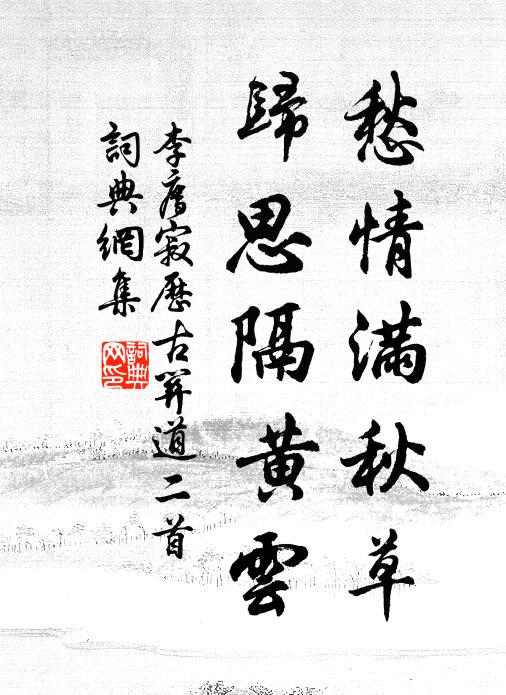 愁情滿秋草
歸思隔黃雲
李廌寂歷古羿道二首
詞典網集
詞典
网印